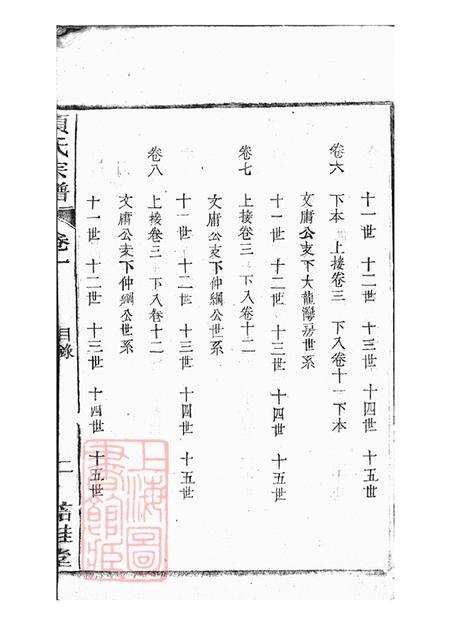 十一世 十二世 十三世 十四世 十五世
卷六 下本 上接卷三 下入卷十一下本
文庸公支下大龍灣房世系
十一世 十二世 十三世 十四世 十五世
卷七 上接卷三 下入卷十二
文庸公支下仲綱公世系
十一世 十二世 十三世 十四世 十五世
卷八 上接卷三 下入卷十二
文庸公支下仲綱公世系
十一世 十二世 十三世 十四世 十五世
氏宗譜 卷一 目錄 二 堂
上海圖書館